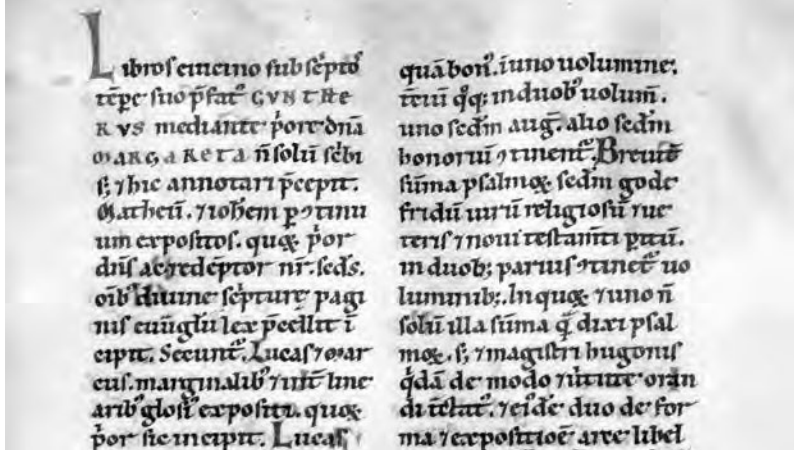 Libros emcino sub sc̄pto
tēpe suo p̄fat᷑ GVNTHE
RVS mediante p̄ore dn̄a
MARGARETA n̄ solū sc̄bi
s; ⁊ hic annotari p̄cepit.
Matheū. ⁊ ioh̄em p ꝯtinu
um expositos. quoꝝ p̄or
dn̄s ac redēptor nr̄. seds.
oīb᷒ diuine sc̄pture pagi
nis euuḡlii lex p̄cellit ī
cipit. Secunt᷑. Lucas ⁊ mar
cus. marginalib᷒ ⁊ int̄ line
arib᷒ glosis expositi. quoꝝ
p̄or sic incipit. Lucas
quā bon᷒. ī uno uolumine.
q̄q; in duob᷒ uolum̄.
uno sedm̄ auḡ. alio sedm̄
honoriū ꝯtinent᷑. Breuis
sūma psalmoꝝ sedm̄ gode
fridū uirū religiosū ⁊ ue
teris ⁊ noui testam̄ti
in duob; paruis ꝯtinet᷑ uo
luminib;. In quoꝝ ⁊ uno n̄
solū illa sūma q̄ dixi psal
moꝝ. s; ⁊ magistri hugonis
q̄dā de modo ⁊ uirtute oran
di ⁊ eide duo de for
ma ⁊ expositioē arce libel